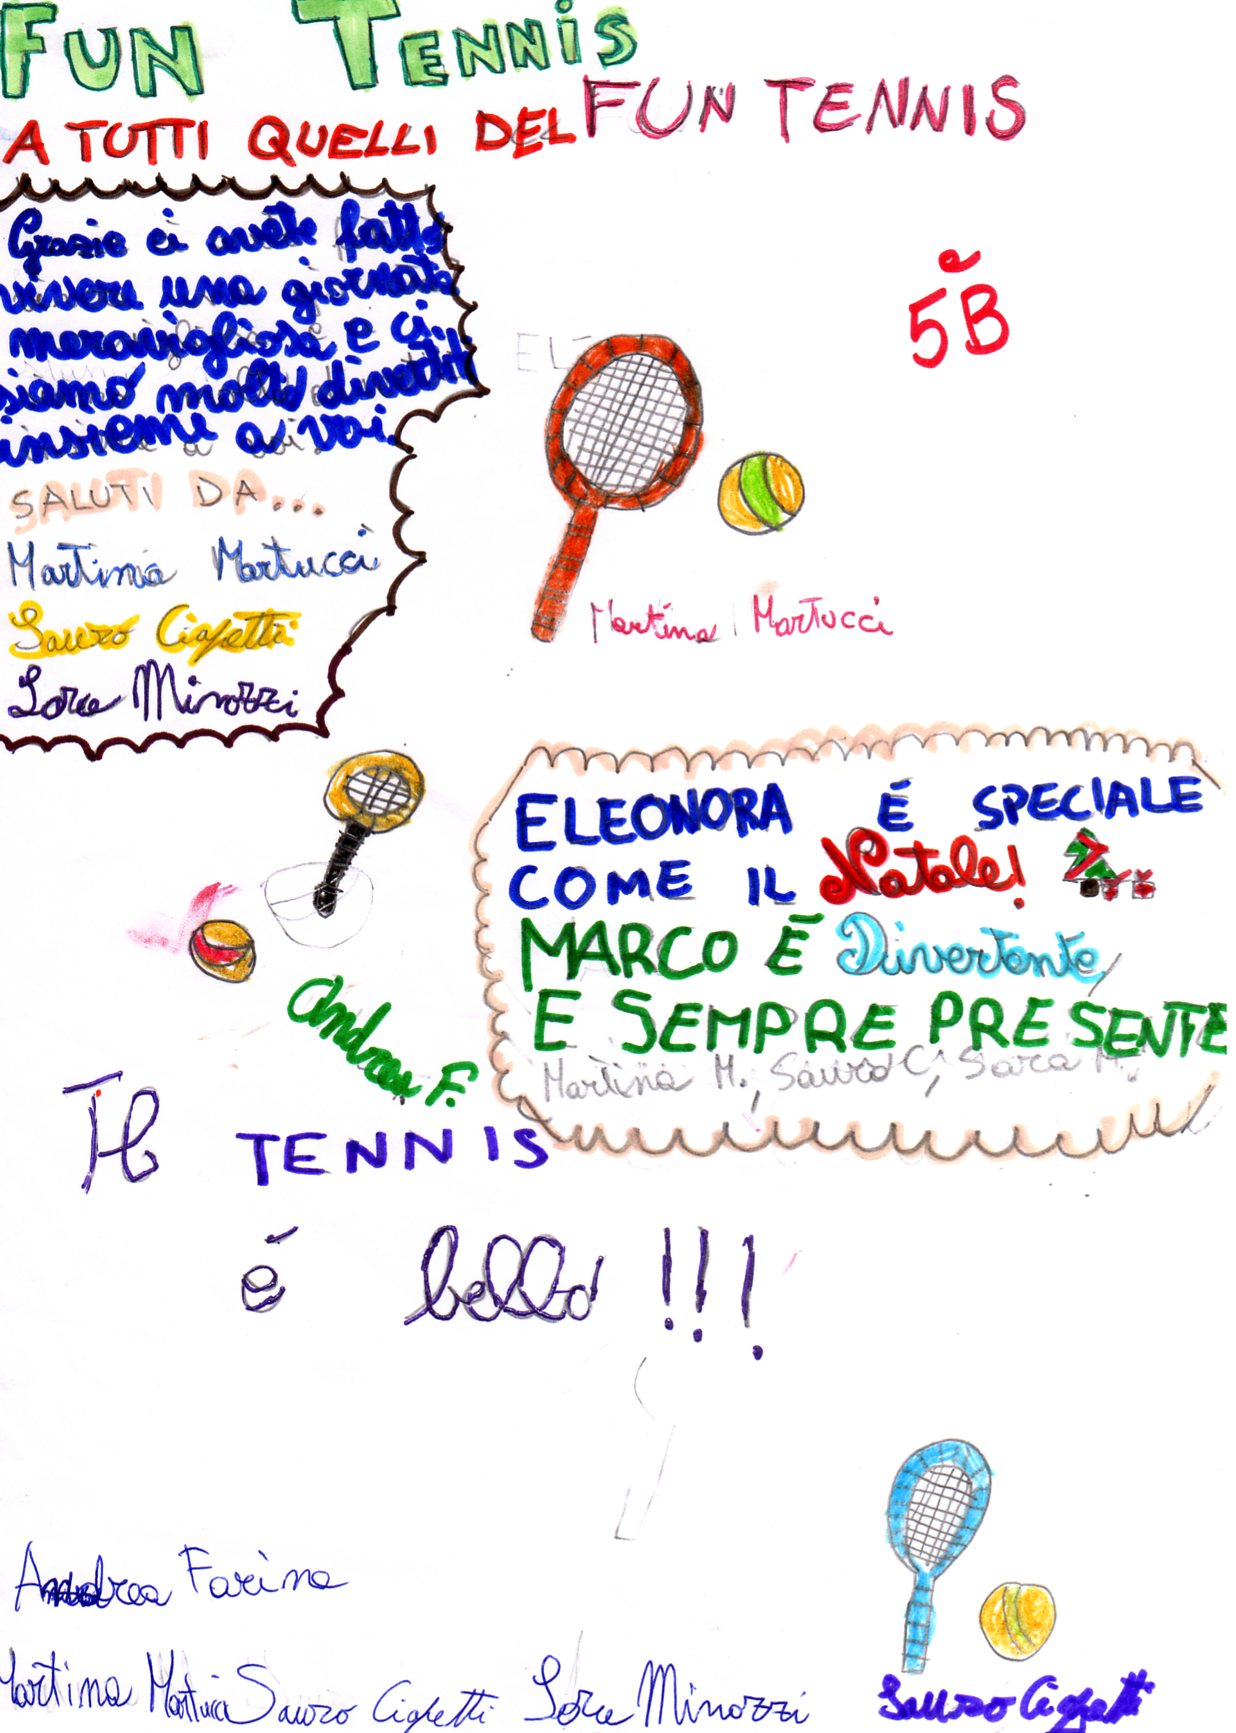 FUN TENNIS
A TUTTI QUELLI DEL FUN TENNIS
Grazie ci avete fatto
vivere una giornata
meravigliosa e ci
siamo molto divertiti
insieme a voi.
SALUTI DA...
Martina Martucci
Sauro
Minozzi
5B
EL
Martina Martucci
ELEONORA É SPECIALE
COME IL Natale!
MARCO É Divertente,
E SEMPRE PRESENTE
Martina M., Sauro C., Sara M.
Andrea F.
Il TENNIS
é bello !!!
Andrea Farina
Martina Martucci Sauro Minozzi
Sauro